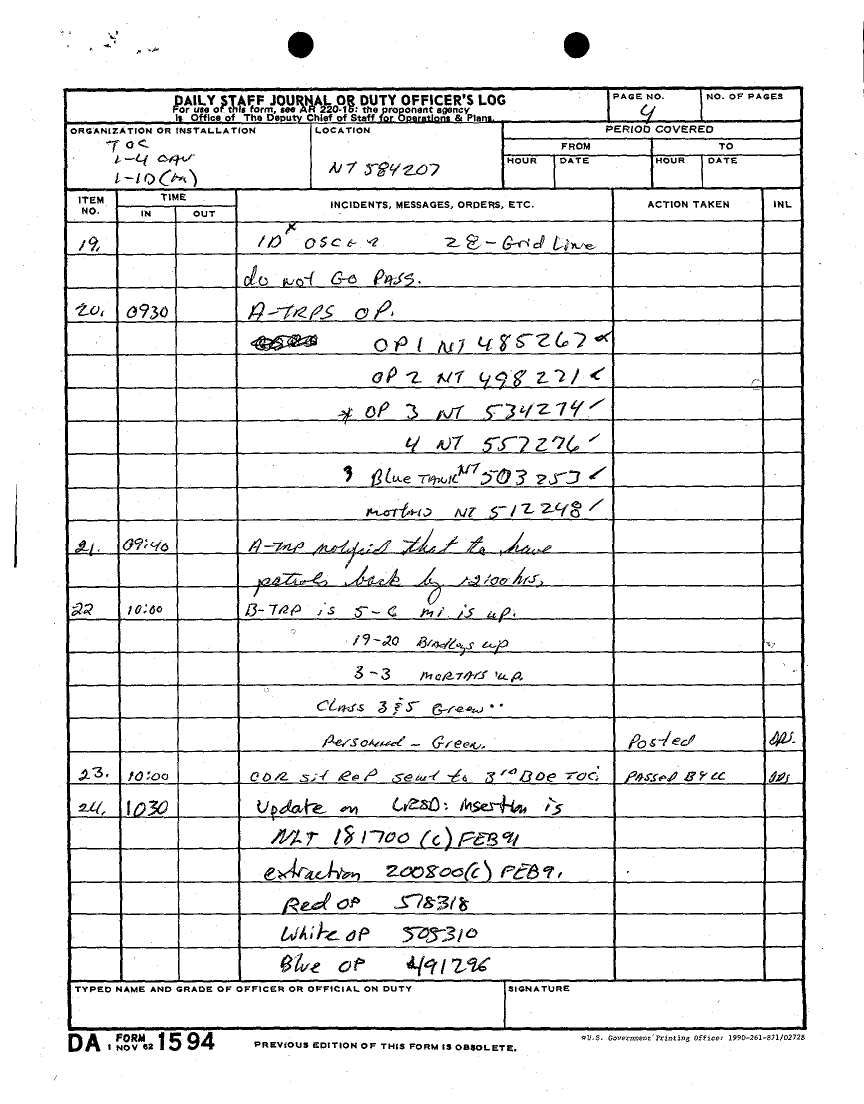 DAILY STAFF JOURNAL OR DUTY OFFICER'S LOG
For use of this form, see AR 220-15: the proponent agency
is Office of The Deputy Chief of Staff for Operations & Plans.
PAGE NO.
4
NO. OF PAGES
ORGANIZATION OR INSTALLATION
TOC
1-4 CAV
1-ID (M)
LOCATION
NT 584207
PERIOD COVERED
FROM
TO
HOUR
DATE
HOUR
DATE
ITEM NO.
TIME
IN
OUT
INCIDENTS, MESSAGES, ORDERS, ETC.
ACTION TAKEN
INL
19. 1D 28-Grid Line
do not Go PASS.
20. 0930 A-TRPS OP.
OP 1 NT 485267
OP 2 NT 498271
* OP 3 NT 534274
4 NT 557276
Blue TANK NT 503253
NT 512248
21. 09:40 A-TRP that to have
patrols back by 12:00 hrs,
22 10:00 B-TRP is 5-6 mi is up.
19-20 Bradleys up
3-3 MORTARS UP.
CLASS 3 & 5 Green
Personnel - Green. Posted
23. 10:00 CDR sit Rep sent to 3rd BDE TOC PASSED BY LL
24. 1030 Update on LRSD: Insertion is
NLT 181700 (C) FEB 91
extraction 200800(C) FEB 9.
Red OP 578318
White OP 505310
Blue OP 491296
TYPED NAME AND GRADE OF OFFICER OR OFFICIAL ON DUTY
SIGNATURE
DA FORM 1 NOV 62 1594
PREVIOUS EDITION OF THIS FORM IS OBSOLETE.
*U.S. Government Printing Office: 1990-261-871/02728